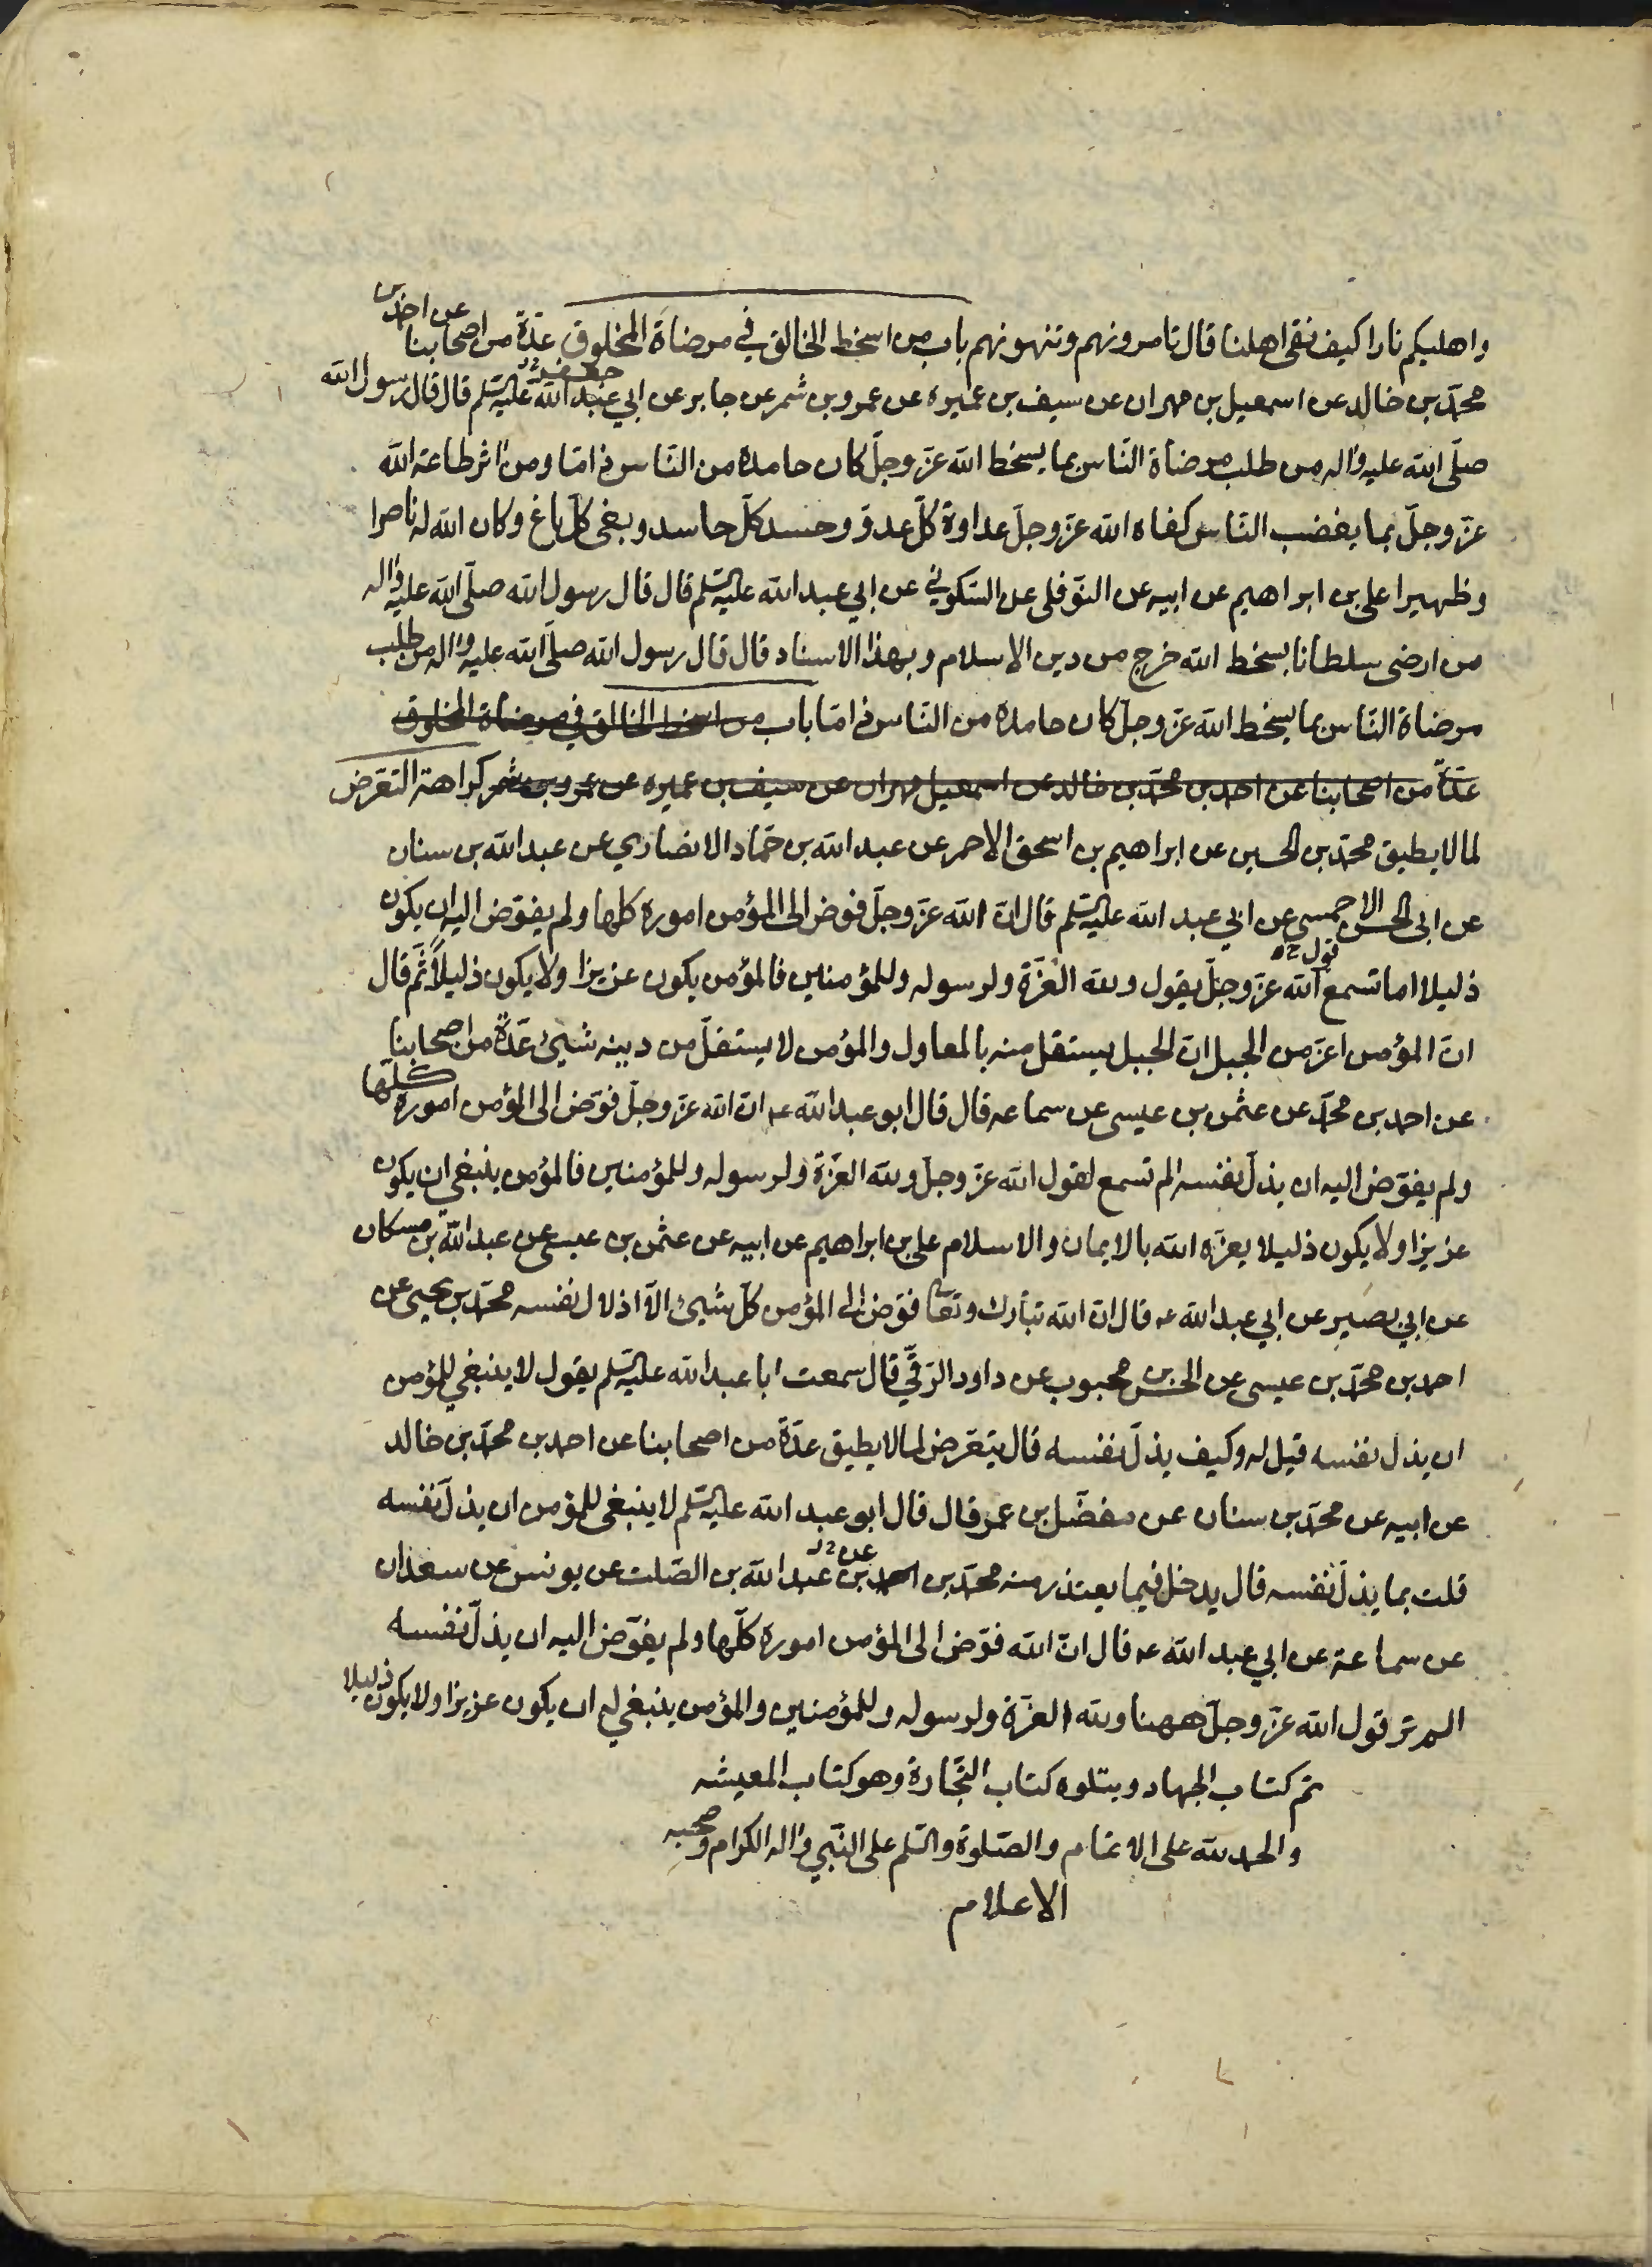 واهليكم نارا كيف نقى اهلنا قال تامرونهم وتنهونهم باب من اسخط الخالق في مرضاة المخلوق عدّة من اصحابنا عن احمد بن
محمّد بن خالد عن اسمعيل بن مهران عن سيف بن عميره عن عمرو بن شمر عن جابر عن ابي عبد الله جعفر عليه السّلم قال قال رسول الله
صلّى الله عليه واله من طلب مرضاة النّاس بما يسخط الله عزّ وجلّ كان حامده من النّاس ذامّا ومن اثر طاعة الله
عزّ وجلّ بما يغضب النّاس كفاه الله عزّ وجلّ عداوة كلّ عدوّ وحسد كلّ حاسد وبغى كلّ باغ وكان الله له ناصرا
وظهيرا على بن ابراهيم عن ابيه عن النّوفلى عن السّكوني عن ابي عبد الله عليه السّلم قال قال رسول الله صلّى الله عليه واله
من ارضى سلطانا بسخط الله خرج من دين الاسلام وبهذا الاسناد قال قال رسول الله صلّى الله عليه واله من طلب
مرضاة النّاس بما يسخط الله عزّ وجلّ كان حامده من النّاس ذامّا باب من اسخط الخالق في مرضاة المخلوق
عدّة من اصحابنا عن احمد بن محمّد بن خالد عن اسمعيل مهران عن سيف بن عميره عن عمرو بن شمر كراهة التعرّض
لما لا يطيق محمّد بن الحسين عن ابراهيم بن اسحق الاحمر عن عبد الله بن حمّاد الانصاري عن عبد الله بن سنان
عن ابى الحسن الاحمسى عن ابي عبد الله عليه السّلم قال انّ الله عزّ وجلّ فوض الى المؤمن اموره كلها ولم يفوّض اليه ان يكون
ذليلا اما تسمع قول الله عزّ وجلّ يقول ولله العزّة ولرسوله وللمؤمنين فالمؤمن يكون عزيزا ولا يكون ذليلاً ثمّ قال
انّ المؤمن اعزّ من الجبل انّ الجبل يستقل منه بالمعاول والمؤمن لا يستقلّ من دينه شيئ عدّة من اصحابنا
عن احمد بن محمّد عن عثمن بن عيسى عن سماعه قال قال ابو عبد الله عه انّ الله عزّ وجلّ فوّض الى المؤمن اموره كلّها
ولم يفوّض اليه ان يذلّ نفسه الم تسمع لقول الله عزّ وجلّ ولله العزّة ولرسوله وللمؤمنين فالمؤمن ينبغي ان يكون
عزيزا ولا يكون ذليلا يعزّه الله بالايمان والاسلام على بن ابراهيم عن ابيه عن عثمن بن عيسى عن عبد الله بن مسكان
عن ابي بصير عن ابي عبد الله عه قال انّ الله تبارك وتعا فوّض الى المؤمن كلّ شيئ الاّ اذلال نفسه محمّد بن يحيى عن
احمد بن محمّد بن عيسى عن الحسن بن محبوب عن داود الرّقّي قال سمعت ابا عبد الله عليه السّلم يقول لا ينبغي للمؤمن
ان يذل نفسه قيل له وكيف يذلّ نفسه قال يتعّرض لما لا يطيق عدّة من اصحابنا عن احمد بن محمّد بن خالد
عن ابيه عن محمّد بن سنان عن مفضّل بن عمر قال قال ابو عبد الله عليه السّلم لا ينبغى للمؤمن ان يذلّ نفسه
قلت بما يذلّ نفسه قال يدخل فيما يعتذر منه محمّد بن احمد بن عن عبد الله بن الصّلت عن يونس عن سعدان
عن سماعة عن ابي عبد الله عه قال انّ الله فوّض الى المؤمن اموره كلّها ولم يفوّض اليه ان يذلّ نفسه
الم تر قول الله عزّ وجلّ ههنا ولله العزّة ولرسوله وللمؤمنين والمؤمن ينبغي له ان يكون عزيزا ولا يكون ذليلا
تم كتاب الجهاد ويتلوه كتاب التّجارة وهو كتاب المعيشه
والحمد لله على الاتمام والصّلوة والسّلم على النّبي واله الكرام وصحبه
الاعلام